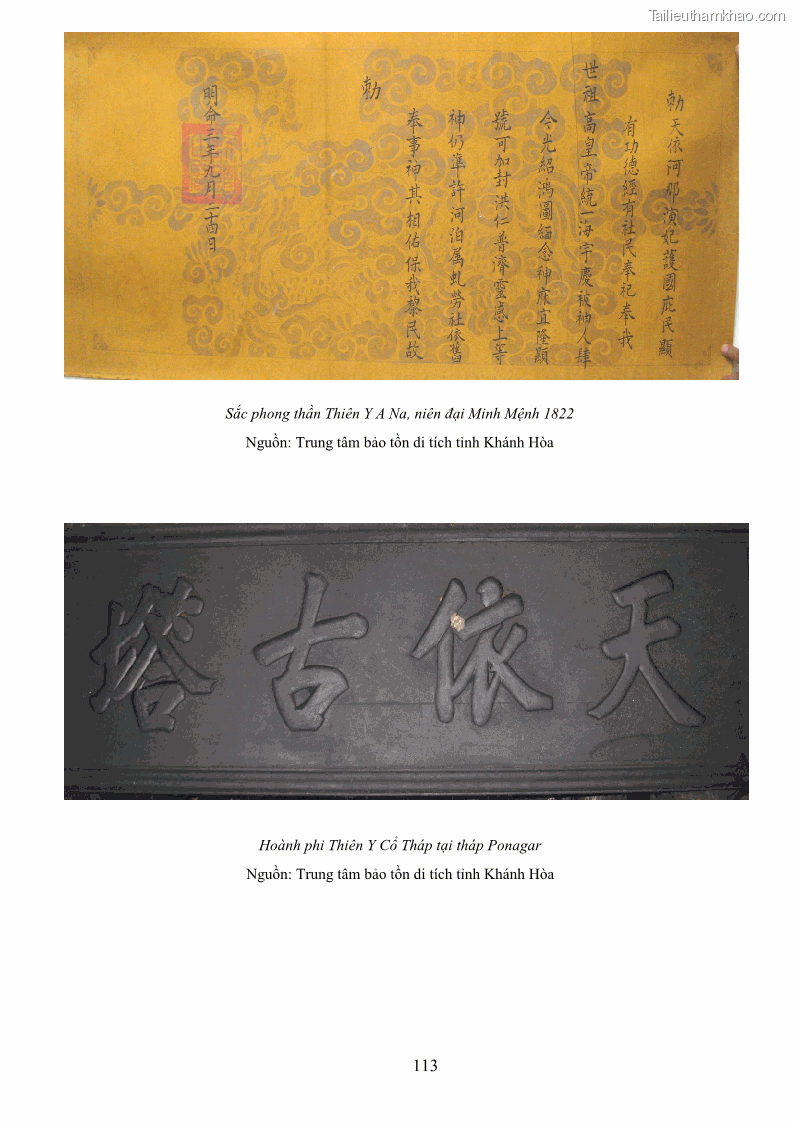 Tailieuthamkhao.com
勅天依阿那演妃護國庇民顯
有功德經有社民奉祀奉我
世祖高皇帝統一海宇慶被神人肆
今光紹鴻圖緬念神庥宜隆顯
號可加封洪仁普濟靈感上等
神仍準許河泊属虬勞社依舊
奉事神其相佑保我黎民故
勅
明命三年九月二十四日
Sắc phong thần Thiên Y A Na, niên đại Minh Mệnh 1822
Nguồn: Trung tâm bảo tồn di tích tỉnh Khánh Hòa
天依古塔
Hoành phi Thiên Y Cổ Tháp tại tháp Ponagar
Nguồn: Trung tâm bảo tồn di tích tỉnh Khánh Hòa
113